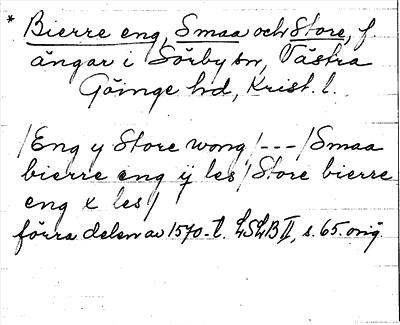 * Bierre eng, Smaa och Store, f
ängar i Sörby sn, Västra
Göinge hd, Krist. l.
/Eng y Store wong/---/Smaa
bierre eng ij les/Store bierre
eng x les/
förra delen av 1570-t. LSLB II, s. 65. orig.